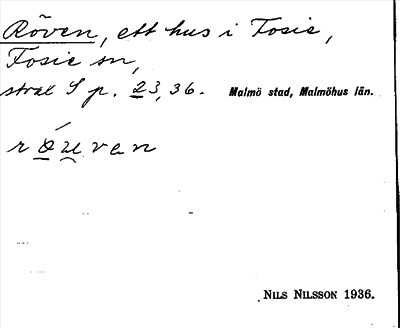 Röven, ett hus i Fosie,
Fosie sn,
stral S p. 23, 36. Malmö stad, Malmöhus län.
NILS NILSSON 1936.